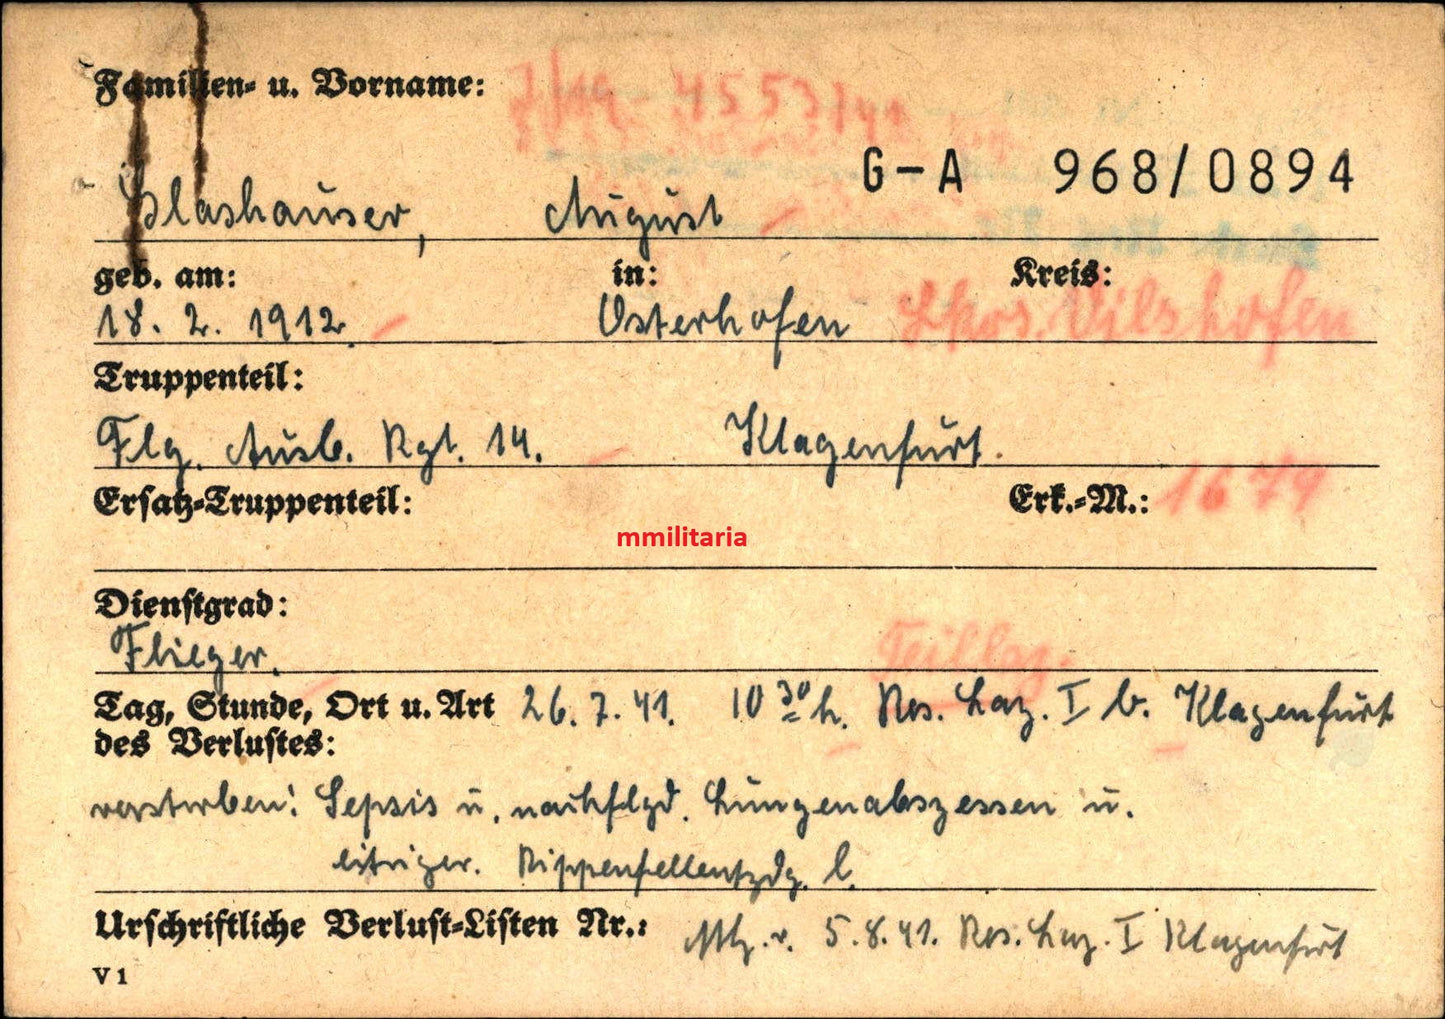 Familien- u. Vorname: J/19 - 4553/41
G-A 968/0894
Glashauser, August
geb. am: in: Kreis:
18. 2. 1912. Osterhofen Lkrs. Vilshofen
Truppenteil:
Flg. Ausb. Rgt. 14. Klagenfurt.
Ersatz-Truppenteil: Erk.-M.: 1679
mmilitaria
Dienstgrad:
Flieger.
Tag, Stunde, Ort u. Art 26. 7. 41. 10 30 h. Res. Laz. I b. Klagenfurt
des Verlustes:
verstorben: Sepsis u. nachflgd. Lungenabszessen u.
eitriger. Rippenfellentzdg. l.
Urschriftliche Verlust-Listen Nr.: v. 5. 8. 41. Res. Laz. I Klagenfurt
V 1